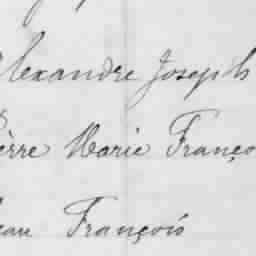 Alexandre Joseph
Pièrre Marie Franço
Jean François